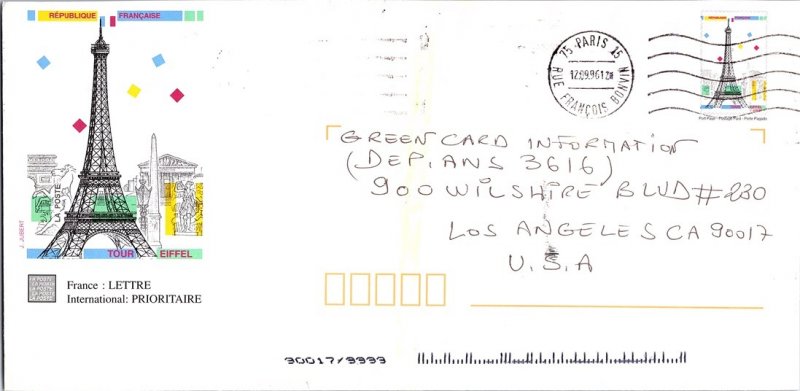 RÉPUBLIQUE FRANÇAISE
LA POSTE
J. JUBERT
TOUR EIFFEL
France : LETTRE
International: PRIORITAIRE
75 PARIS 15
12.09.96 12H
RUE FRANÇOIS BONVIN
Port Payé - Postage Paid - Porte Pagado
GREEN CARD INFORMATION
(DEP. ANS 3616)
900 WILSHIRE BLVD # 230
LOS ANGELES CA 90017
U.S.A
30017/9993